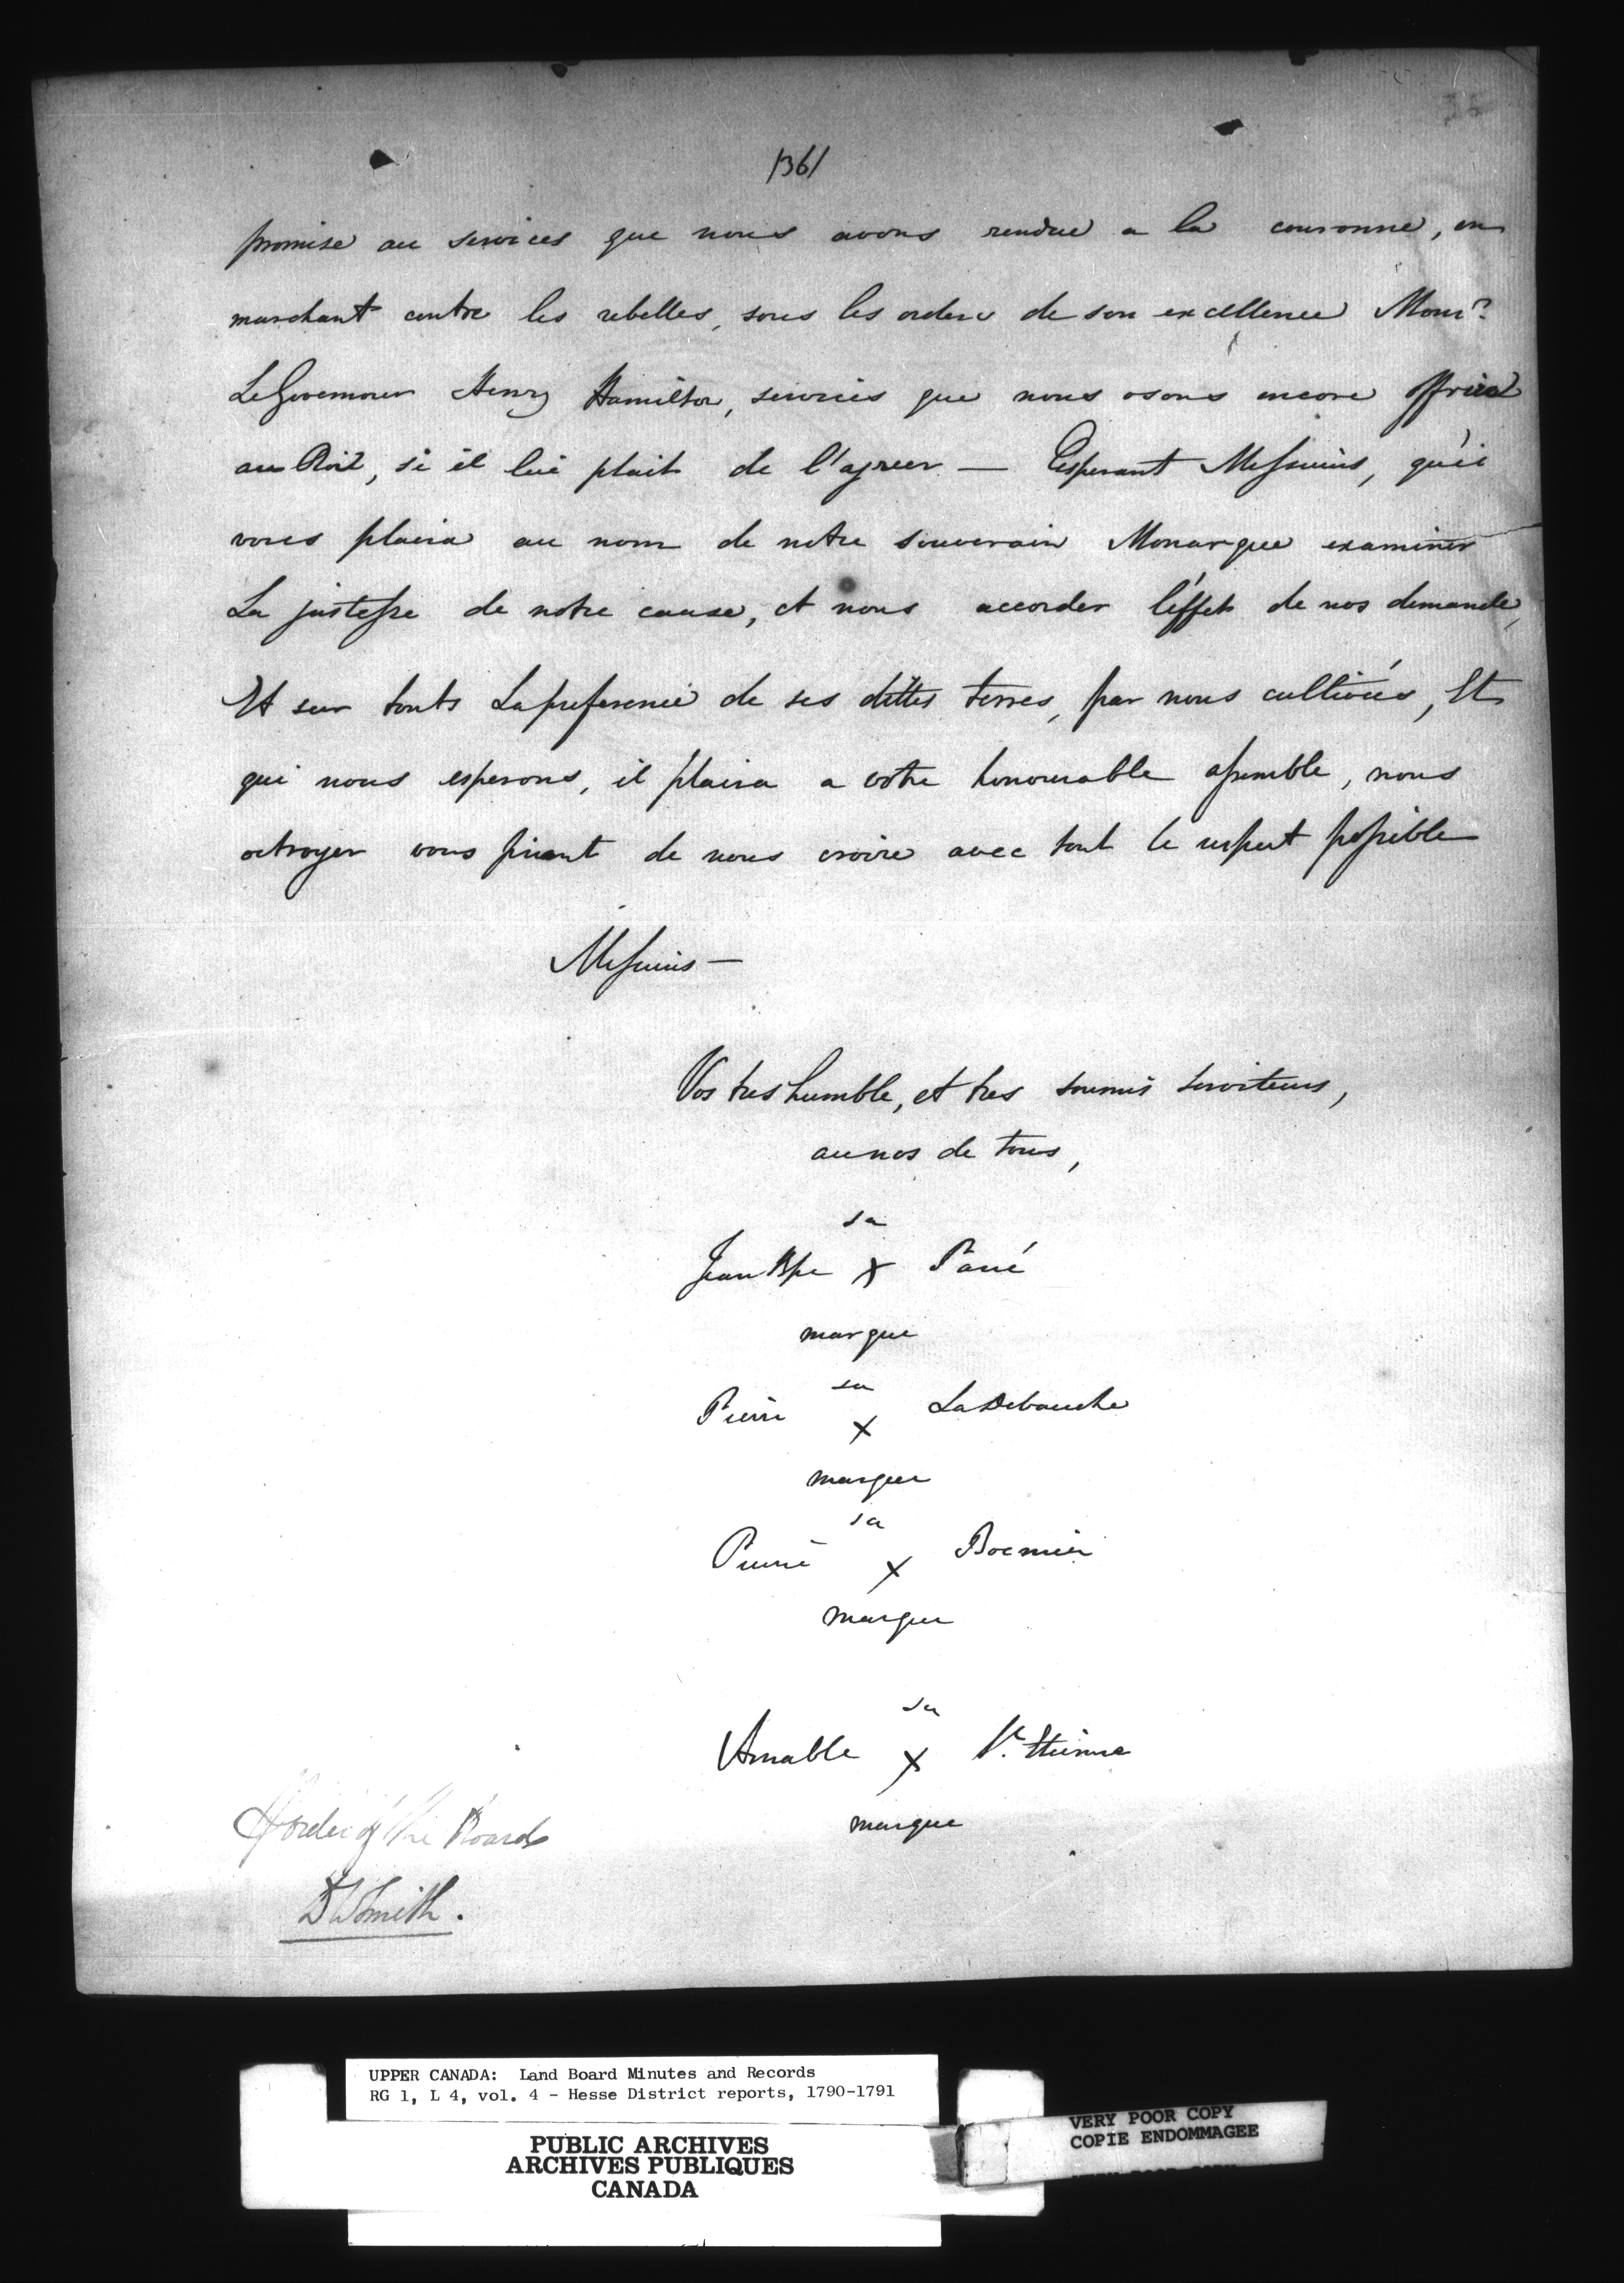 35
/36/
promise au services que nous avons rendue a la couronne, en
marchant contre les rebelles, sous les orders de son excellence Monr.
Le Governour Henry Hamilton, servies que nous osons encore offrier
au Roit, si il lui plait de l'agreer — Esperant Messieurs, qu'il
vous plaira au nom de notre souverain Monarque examiner
La justesse de notre cause, et nous accorder l'éffet de nos demande,
Et sur touts La preference de ses dittes terres, par nous cultivées, Et
qui nous esperons, il plaira a votre honourable assemble, nous
octroyer vous priant de nous croire avec tout le respect possible
Messieurs —
Vos tres humble, et tres soumis serviteurs,
au nos de tous,
sa
Jean Bpe X Parré
marque
sa
Pierre X La Debauche
marque
sa
Pierre X
marque
sa
Amable X St. Etienne
marque
order of the Board
D W Smith.
UPPER CANADA: Land Board Minutes and Records
RG 1, L 4, vol. 4 - Hesse District reports, 1790-1791
PUBLIC ARCHIVES
ARCHIVES PUBLIQUES
CANADA
VERY POOR COPY
COPIE ENDOMMAGEE